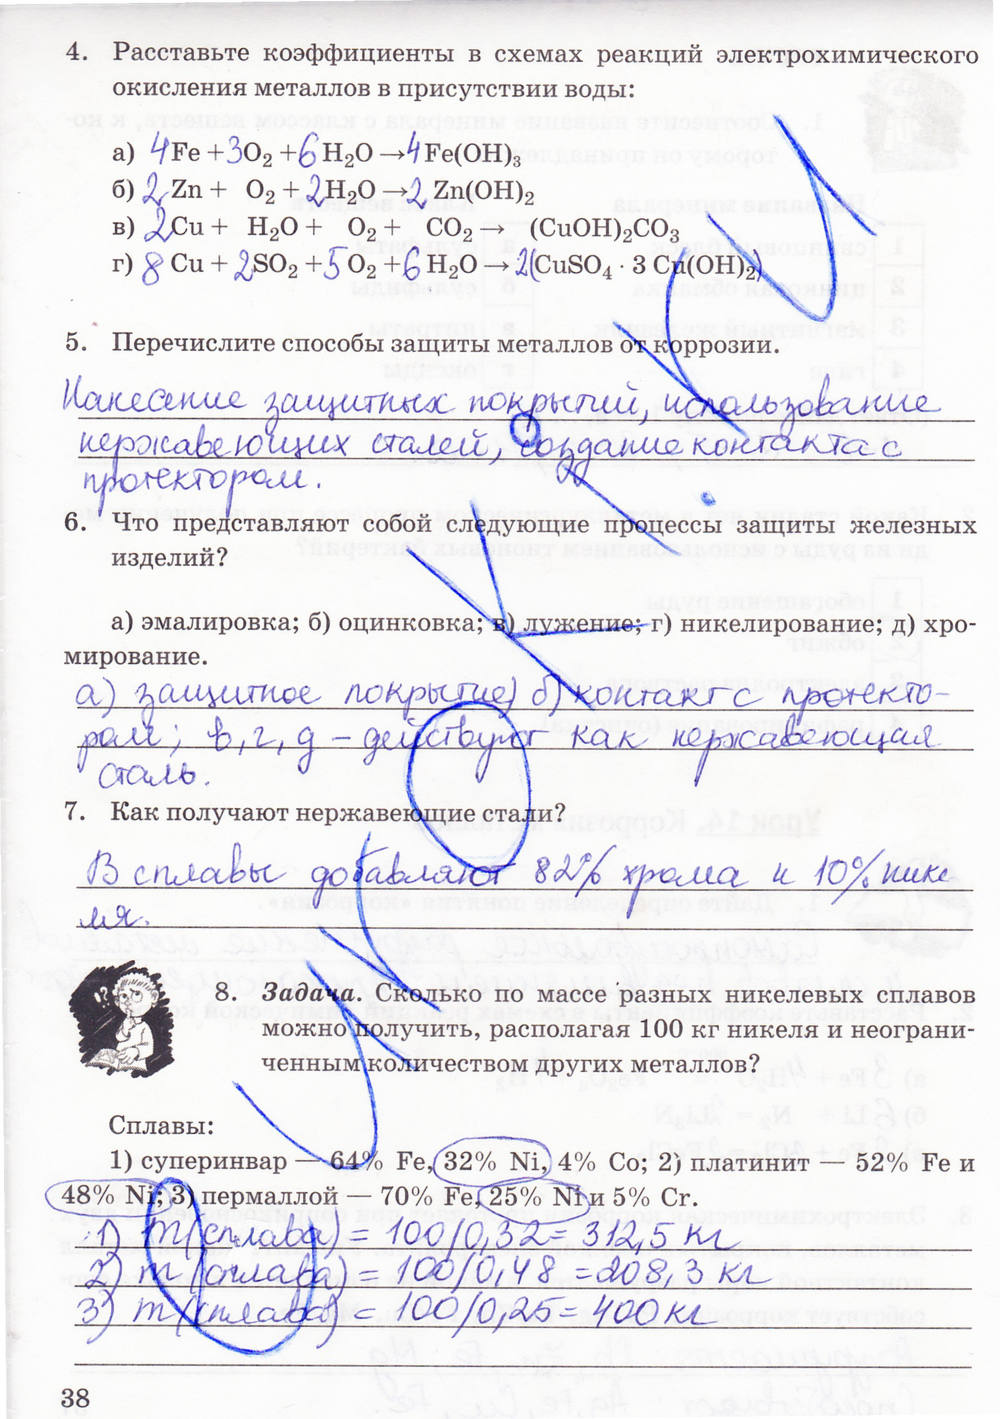 4. Расставьте коэффициенты в схемах реакций электрохимического
окисления металлов в присутствии воды:
а) 4Fe + 3O₂ + 6H₂O → 4Fe(OH)₃
б) 2Zn + O₂ + 2H₂O → 2Zn(OH)₂
в) 2Cu + H₂O + O₂ + CO₂ → (CuOH)₂CO₃
г) 8Cu + 2SO₂ + 5O₂ + 6H₂O → 2(CuSO₄ · 3Cu(OH)₂)
5. Перечислите способы защиты металлов от коррозии.
Нанесение защитных покрытий, использование
нержавеющих сталей, создание контакта с
протектором.
6. Что представляют собой следующие процессы защиты железных
изделий?
а) эмалировка; б) оцинковка; в) лужение; г) никелирование; д) хро-
мирование.
а) защитное покрытие; б) контакт с протекто-
ром; в, г, д – действуют как нержавеющая
сталь.
7. Как получают нержавеющие стали?
В сплавы добавляют 82% хрома и 10% нике
ля.
8. Задача. Сколько по массе разных никелевых сплавов
можно получить, располагая 100 кг никеля и неограни-
ченным количеством других металлов?
Сплавы:
1) суперинвар — 64% Fe, 32% Ni, 4% Co; 2) платинит — 52% Fe и
48% Ni; 3) пермаллой — 70% Fe, 25% Ni и 5% Cr.
1) m(сплава) = 100/0,32 = 312,5 кг
2) m(сплава) = 100/0,48 = 208,3 кг
3) m(сплава) = 100/0,25 = 400 кг
38